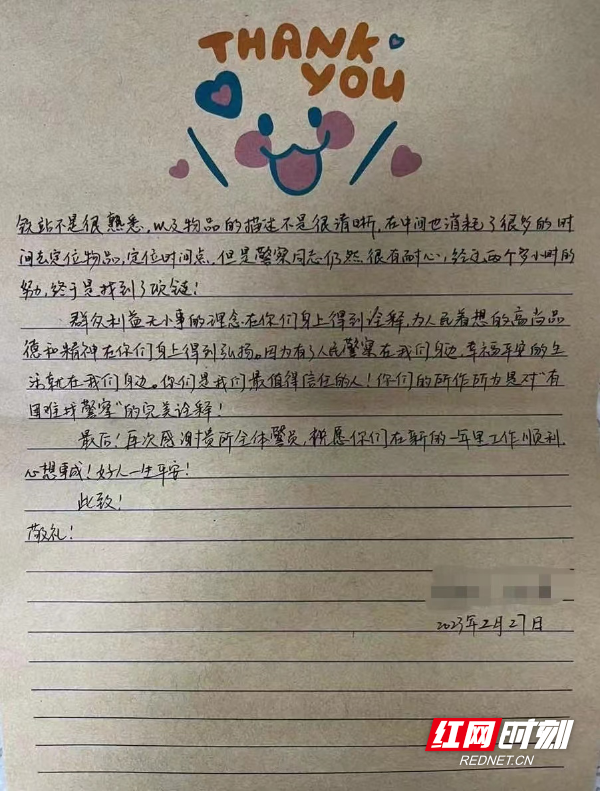 THANK
YOU
铁站不是很熟悉,以及物品的描述不是很清晰,在中间也消耗了很多的时
间去定位物品,定位时间点,但是警察同志仍然很有耐心,经过两个多小时的
努力,终于是找到了项链!
群众利益无小事的理念在你们身上得到诠释,为人民着想的高尚品
德和精神在你们身上得到弘扬。因为有了人民警察在我们身边,幸福平安的生
活就在我们身边。你们是我们最值得信任的人!你们的所作所为是对“有
困难找警察”的完美诠释!
最后!再次感谢贵所全体警员,祝愿你们在新的一年里工作顺利,
心想事成!好人一生平安!
此致!
敬礼!
2023年2月27日
红网时刻
REDNET.CN